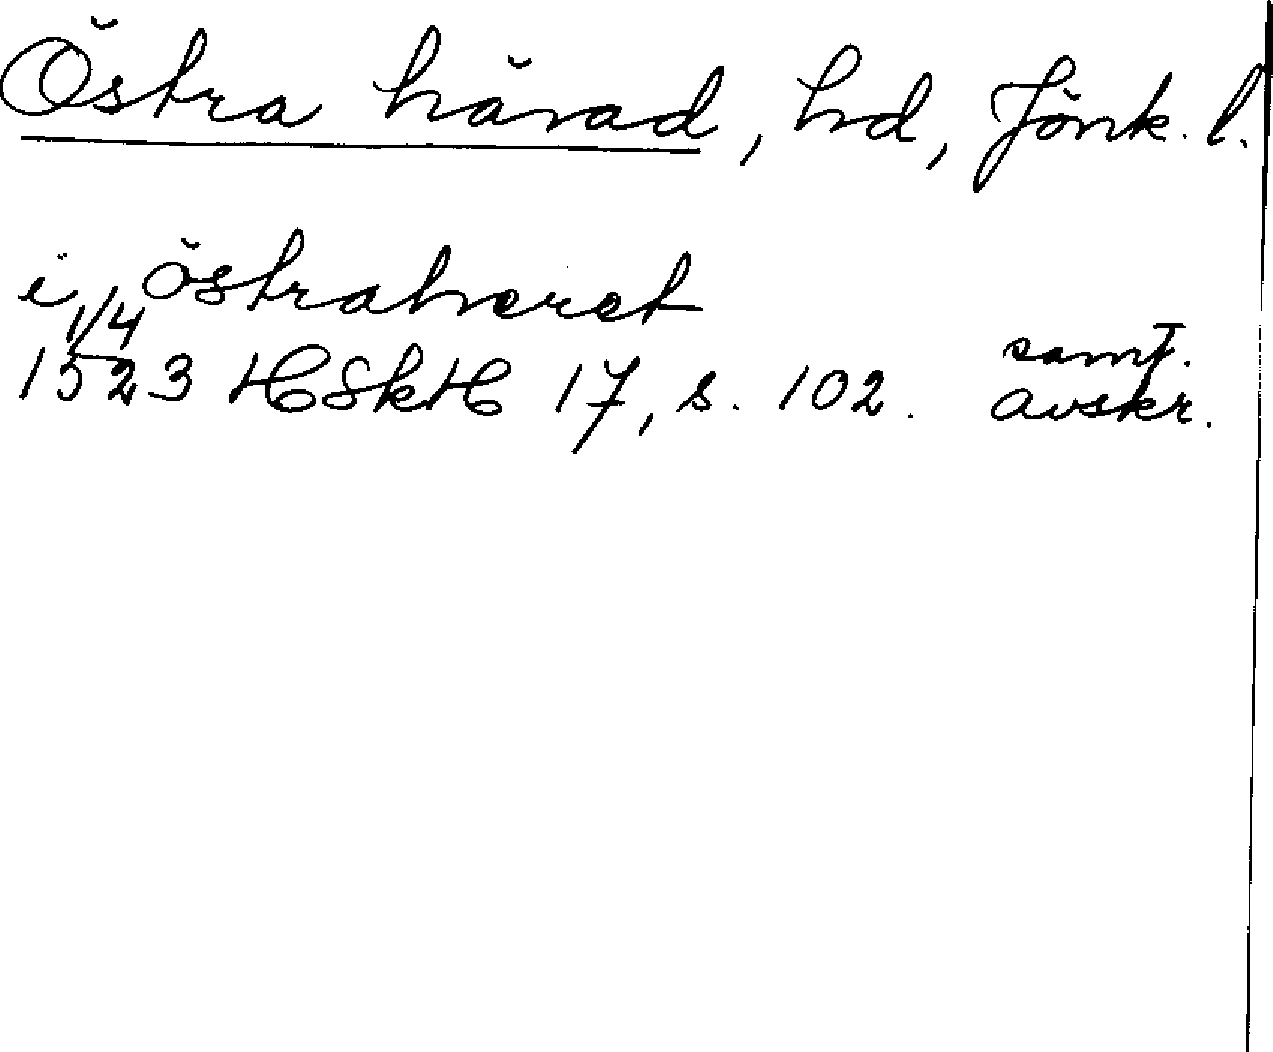 Östra härad, hd, Jönk. l.
i östraheret
1/4
1523 HSkH 17, s. 102. samt.
avskr.